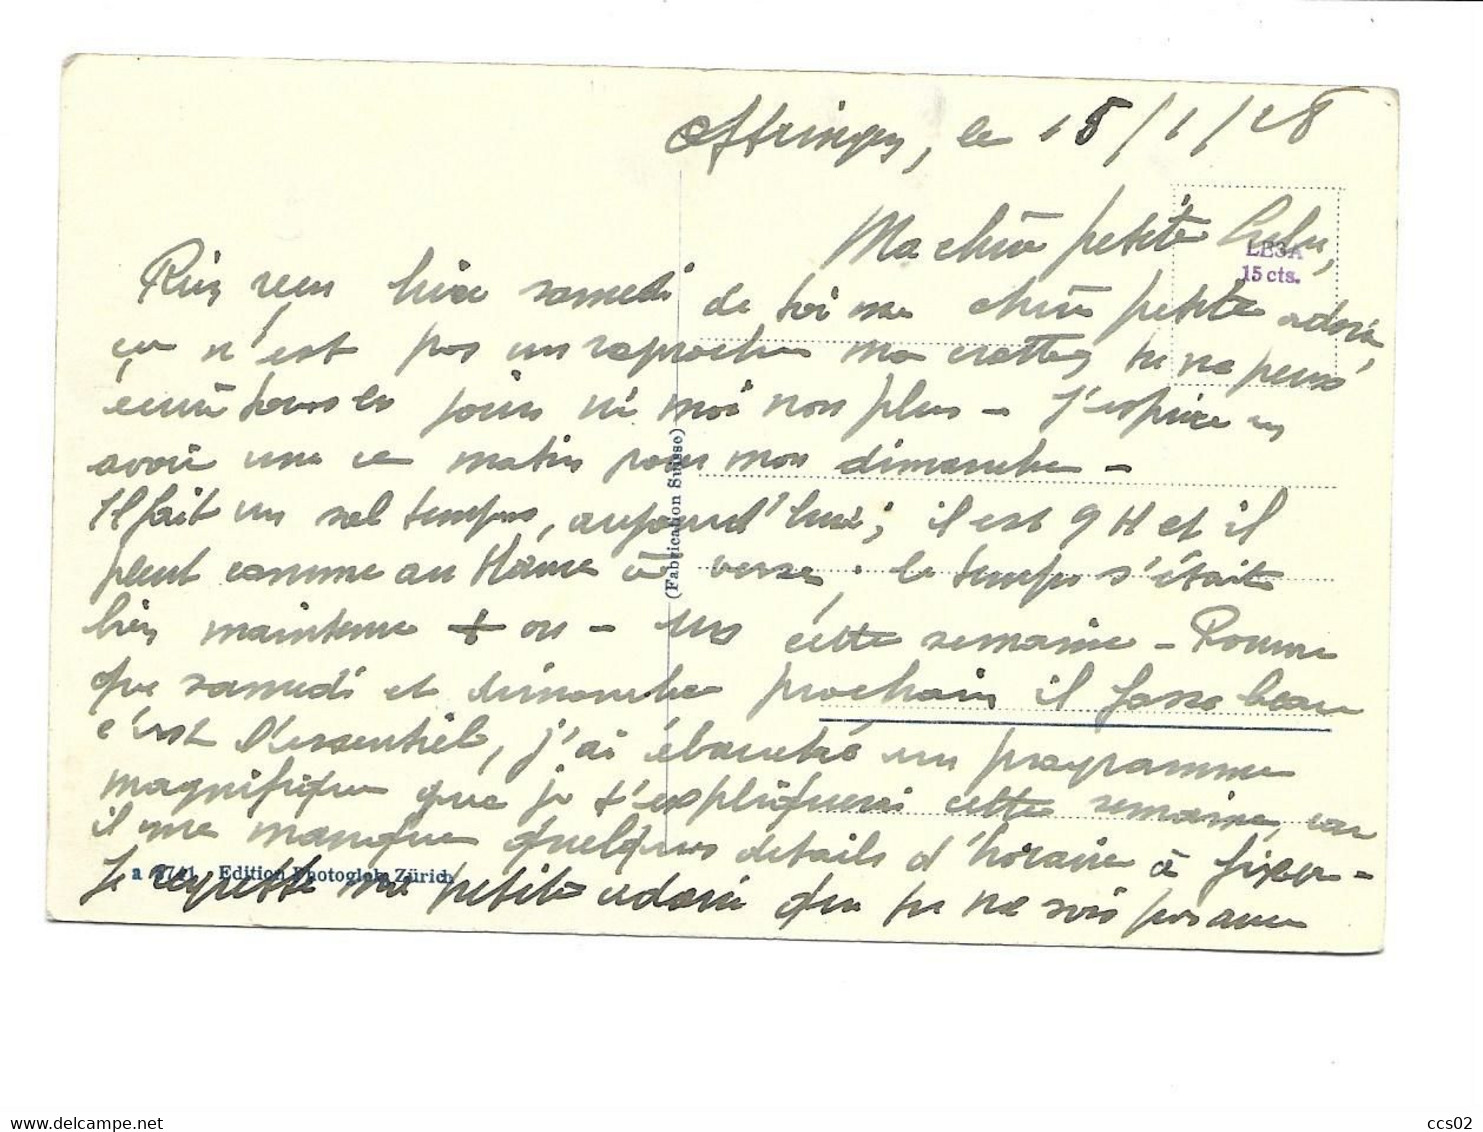 Oftringen, le 18/1/28
Ma chère petite Lulu,
LESA
15 cts.
Rien reçu hier samedi de toi ma chère petite adorée,
ce n'est pas un reproche ma crotte, tu ne peux
écrire tous les jours ni moi non plus – J'espère en
avoir une ce matin pour mon dimanche –
Il fait un sal temps, aujourd'hui, il est 9 H et il
pleut comme au à verse, le temps s'était
bien maintenu + ou – cette semaine – Pourvu
que samedi et dimanche prochain il fasse beau
c'est l'essentiel, j'ai ébauché un programme
magnifique que je t'expliquerai cette semaine, car
il me manque quelques détails d'horaire à fixer –
Je regrette ma petite adorée que tu ne sois pas avec
(Fabrication Suisse)
Edition Photoglob, Zürich
www.delcampe.net
ccs02